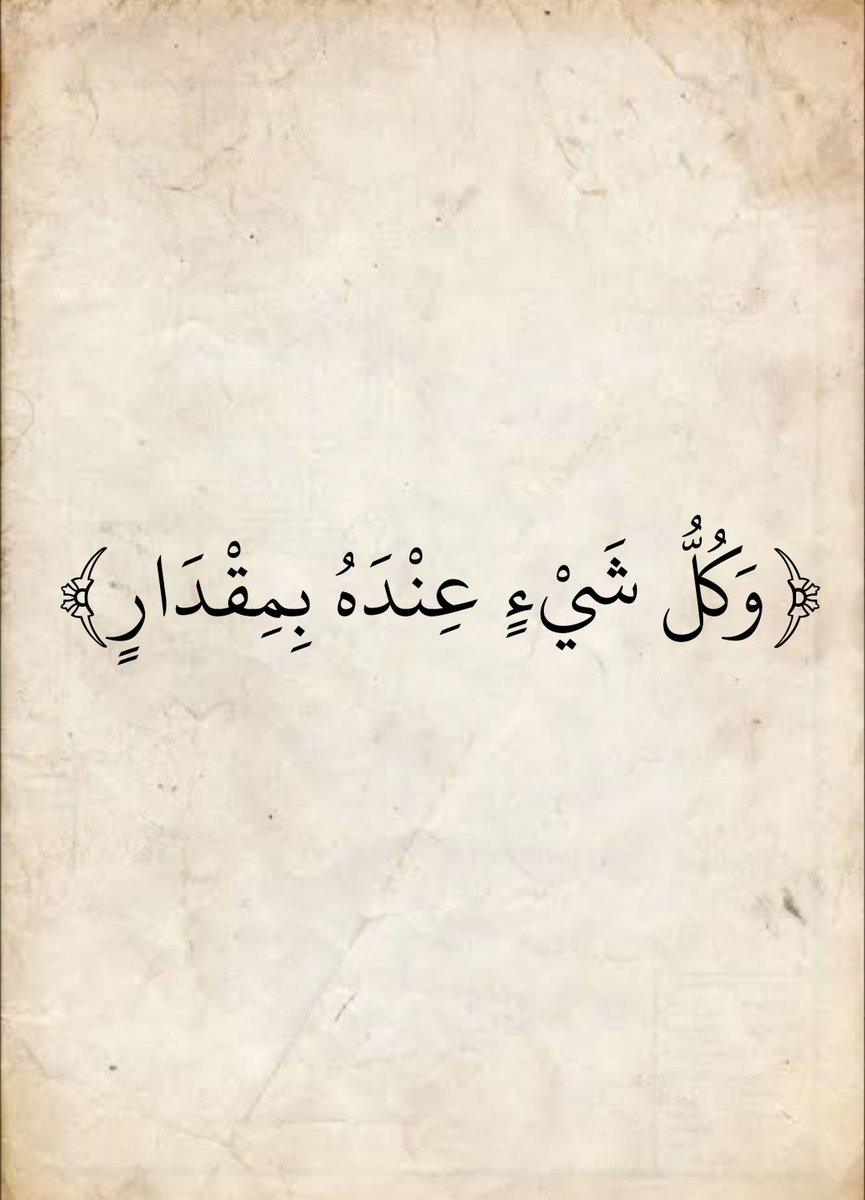 ﴿وَكُلُّ شَيْءٍ عِنْدَهُ بِمِقْدَارٍ﴾